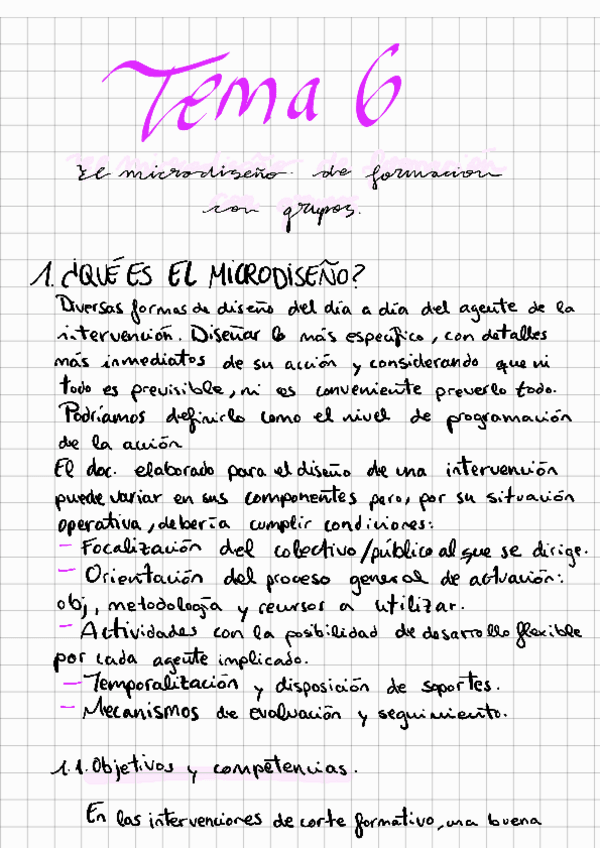 Tema 6
El microdiseño de formacion
con grupos.
1. ¿QUÉ ES EL MICRODISEÑO?
Diversas formas de diseño del día a día del agente de la
intervención. Diseñar lo más específico, con detalles
más inmediatos de su acción y considerando que ni
todo es previsible, ni es conveniente preverlo todo.
Podríamos definirlo como el nivel de programación
de la acción
El doc. elaborado para el diseño de una intervención
puede variar en sus componentes pero, por su situación
operativa, debería cumplir condiciones:
- Focalización del colectivo/público al que se dirige.
- Orientación del proceso general de actuación:
obj, metodología y recursos a utilizar.
- Actividades con la posibilidad de desarrollo flexible
por cada agente implicado.
- Temporalización y disposición de soportes.
- Mecanismos de evaluación y seguimiento.
1.1. Objetivos y competencias.
En las intervenciones de corte formativo, una buena